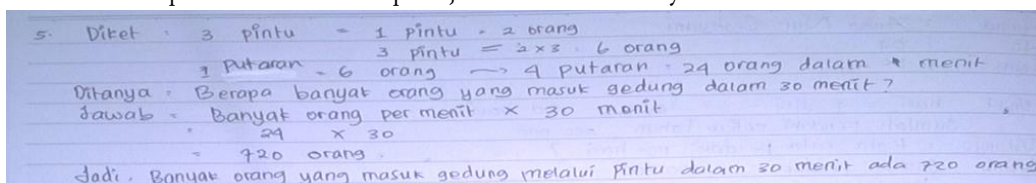 5. Diket : 3 pintu = 1 pintu = 2 orang
3 pintu = 2 x 3 6 orang
1 Putaran = 6 orang → 4 putaran = 24 orang dalam menit
Ditanya : Berapa banyak orang yang masuk gedung dalam 30 menit ?
Jawab = Banyak orang per menit x 30 menit
24 x 30
= 720 orang.
Jadi, Banyak orang yang masuk gedung melalui pintu dalam 30 menit ada 720 orang